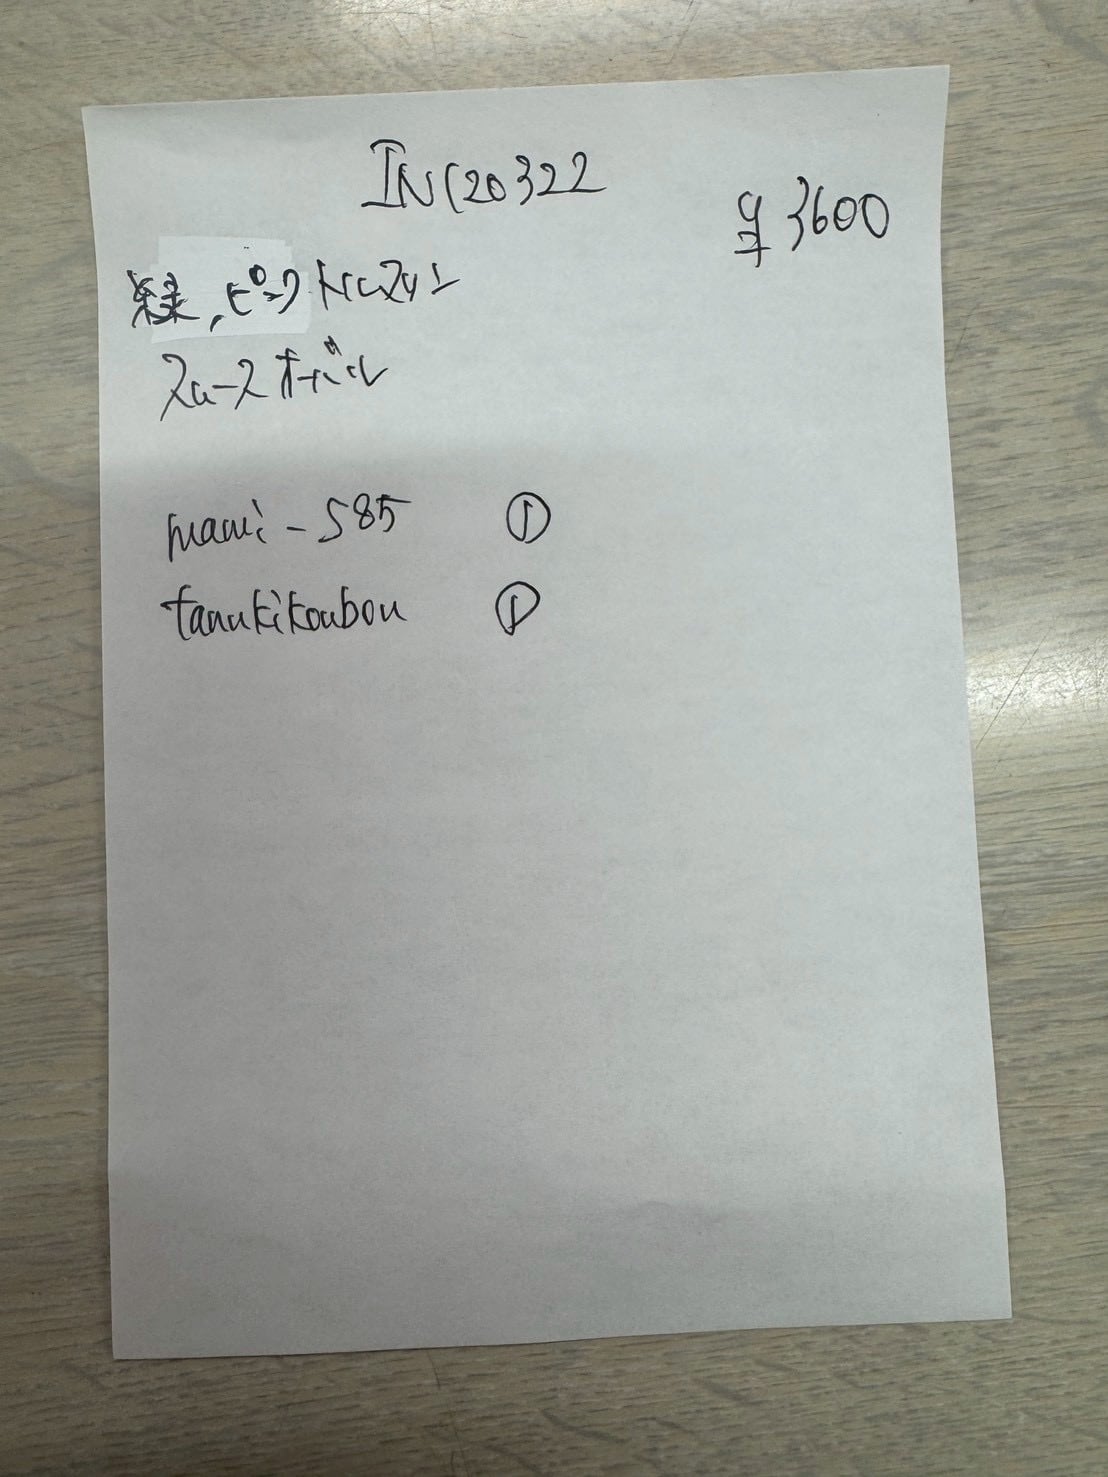 INC20322
¥3600
緑、ピンクトルマリン
ルースオーバル
mami-585 ①
tanukikoubou ①